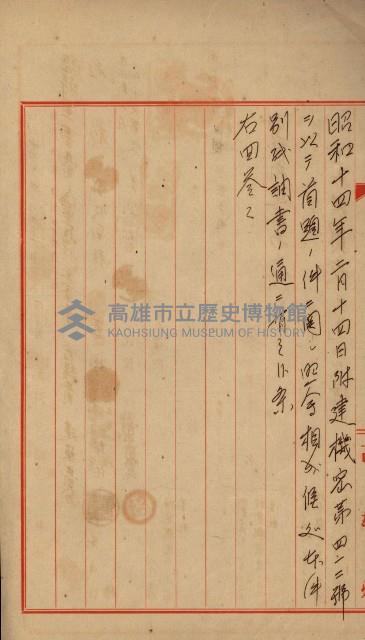 昭和十四年二月十四日附建機密第四二二號
ヲ以テ首題ノ件ニ関シ照会相成候処本件
別紙調書ノ通ニ有之候条
右回答ス
高雄市立歷史博物館
KAOHSIUNG MUSEUM OF HISTORY